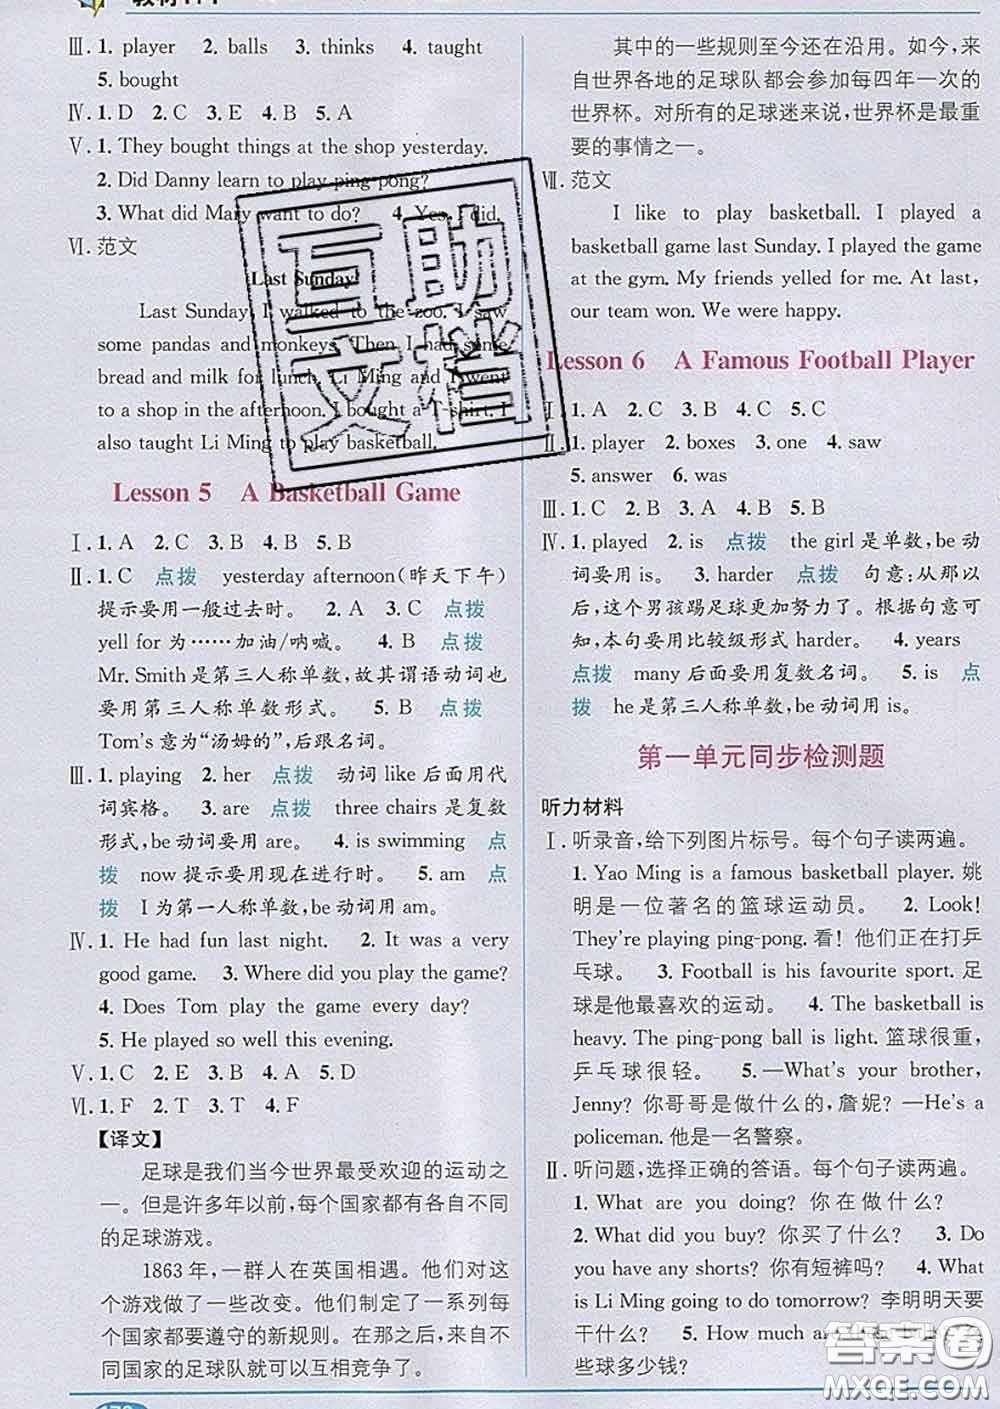 Ⅲ. 1. player 2. balls 3. thinks 4. taught
5. bought
Ⅳ. 1. D 2. C 3. E 4. B 5. A
Ⅴ. 1. They bought things at the shop yesterday.
2. Did Danny learn to play ping-pong?
3. What did Mary want to do? 4. Yes, I did.
Ⅵ. 范文
Last Sunday
Last Sunday, I walked to the zoo. I saw
some pandas and monkeys. Then I had some
bread and milk for lunch. Li Ming and I went
to a shop in the afternoon. I bought a T-shirt. I
also taught Li Ming to play basketball.
Lesson 5 A Basketball Game
Ⅰ. 1. A 2. C 3. B 4. B 5. B
Ⅱ. 1. C 点拨 yesterday afternoon(昨天下午)
提示要用一般过去时。 2. A 3. C 点拨
yell for 为……加油/呐喊。 4. B 点拨
Mr. Smith是第三人称单数,故其谓语动词也
要用第三人称单数形式。 5. B 点拨
Tom's意为“汤姆的”,后跟名词。
Ⅲ. 1. playing 2. her 点拨 动词 like 后面用代
词宾格。 3. are 点拨 three chairs 是复数
形式,be动词要用 are。 4. is swimming 点
拨 now 提示要用现在进行时。 5. am 点
拨 I 为第一人称单数,be动词用 am。
Ⅳ. 1. He had fun last night. 2. It was a very
good game. 3. Where did you play the game?
4. Does Tom play the game every day?
5. He played so well this evening.
Ⅴ. 1. C 2. E 3. B 4. A 5. D
Ⅵ. 1. F 2. T 3. T 4. F
【译文】
足球是我们当今世界最受欢迎的运动之
一。但是许多年以前,每个国家都有各自不同
的足球游戏。
1863 年,一群人在英国相遇。他们对这
个游戏做了一些改变。他们制定了一系列每
个国家都要遵守的新规则。在那之后,来自不
同国家的足球队就可以互相竞争了。
其中的一些规则至今还在沿用。如今,来
自世界各地的足球队都会参加每四年一次的
世界杯。对所有的足球迷来说,世界杯是最重
要的事情之一。
Ⅶ. 范文
I like to play basketball. I played a
basketball game last Sunday. I played the game
at the gym. My friends yelled for me. At last,
our team won. We were happy.
Lesson 6 A Famous Football Player
Ⅰ. 1. A 2. C 3. B 4. C 5. C
Ⅱ. 1. player 2. boxes 3. one 4. saw
5. answer 6. was
Ⅲ. 1. B 2. C 3. A 4. B 5. B
Ⅳ. 1. played 2. is 点拨 the girl 是单数,be 动
词要用 is。 3. harder 点拨 句意:从那以
后,这个男孩踢足球更加努力了。根据句意可
知,本句要用比较级形式 harder。 4. years
点拨 many 后面要用复数名词。 5. is 点
拨 he是第三人称单数,be动词用 is。
第一单元同步检测题
听力材料
Ⅰ. 听录音,给下列图片标号。每个句子读两遍。
1. Yao Ming is a famous basketball player. 姚
明是一位著名的篮球运动员。 2. Look!
They're playing ping-pong. 看!他们正在打乒
乓球。 3. Football is his favourite sport. 足
球是他最喜欢的运动。 4. The basketball is
heavy. The ping-pong ball is light. 篮球很重,
乒乓球很轻。 5. —What's your brother,
Jenny? 你哥哥是做什么的,詹妮? —He's a
policeman. 他是一名警察。
Ⅱ. 听问题,选择正确的答语。每个句子读两遍。
1. What are you doing? 你在做什么?
2. What did you buy? 你买了什么? 3. Do
you have any shorts? 你有短裤吗? 4. What
is Li Ming going to do tomorrow? 李明明天要
干什么? 5. How much are
些球多少钱?
互助
文档
答案圈
MXQE.COM